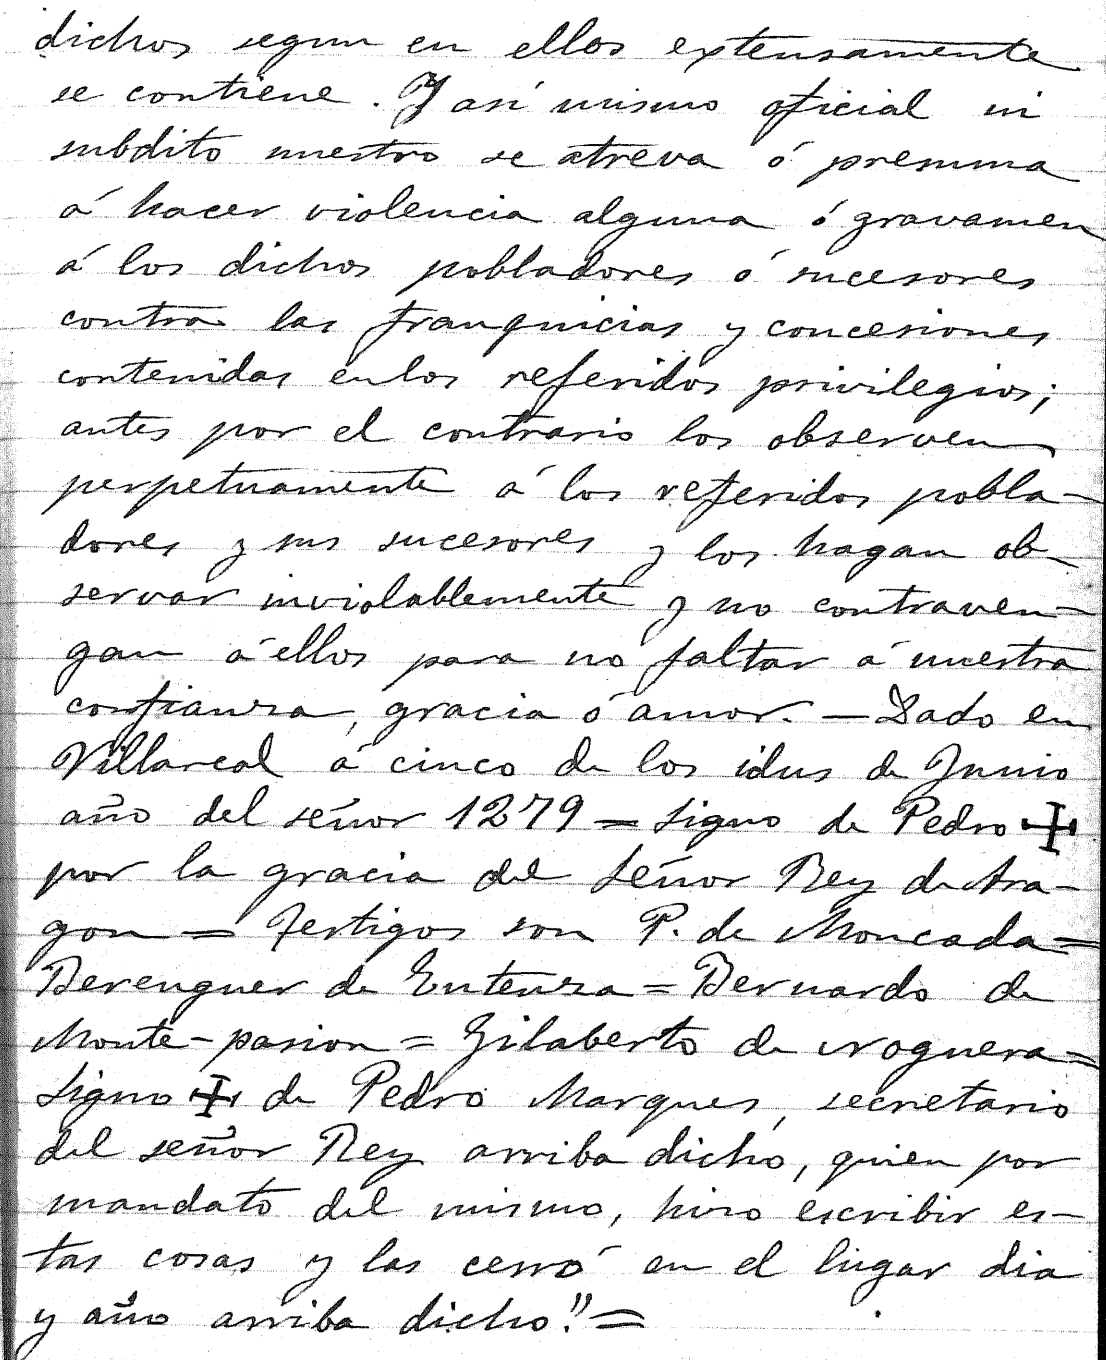 dichos segun en ellos extensamente
se contiene. Y asi mismo oficial ni
subdito nuestro se atreva ó presuma
á hacer violencia alguna ó gravamen
á los dichos pobladores ó sucesores
contra las franquicias y concesiones
contenidas en los referidos privilegios;
antes por el contrario los observen
perpetuamente á los referidos pobla-
dores y sus sucesores y los hagan ob-
servar inviolablemente y no contraven-
gan á ellos para no faltar á nuestra
confianza, gracia ó amor. — Dado en
Villareal á cinco de los idus de Junio
año del señor 1279 = Signo de Pedro ✠
por la gracia del Señor Rey de Ara-
gon = Testigos son P. de Moncada =
Berenguer de Entenza = Bernardo de
Monte-pasion = Gilaberto de Noguera =
Signo ✠ de Pedro Marques, secretario
del señor Rey arriba dicho, quien por
mandato del mismo, hizo escribir es-
tas cosas y las cerró en el lugar dia
y año arriba dicho." =